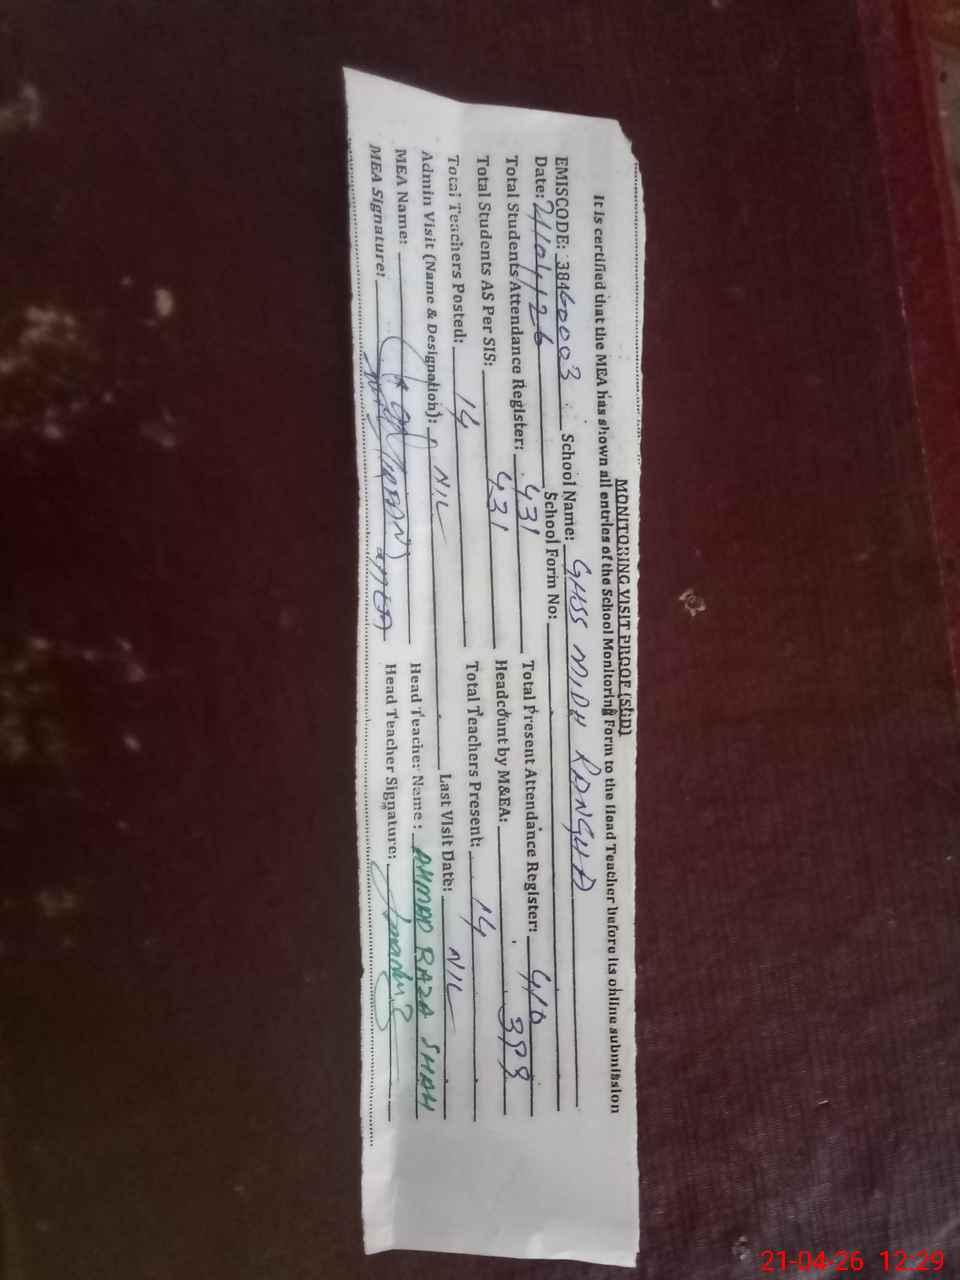 MONITORING VISIT PROOF (SED)
It is certified that the MEA has shown all entries of the School Monitoring Form to the Head Teacher before its online submission
EMISCODE: 38460003 School Name: GHSS MIDH RANGHA
Date: 21/04/26 School Form No:
Total Students Attendance Register: 431 Total Present Attendance Register: 410
Total Students AS Per SIS: 431 Headcount by M&EA: 398
Total Teachers Posted: 14 Total Teachers Present: 14
Admin Visit (Name & Designation): NIL Last Visit Date: NIL
MEA Name: Head Teacher Name: AHMAD RAZA SHAH
MEA Signature: Head Teacher Signature:
21-04-26 12:29